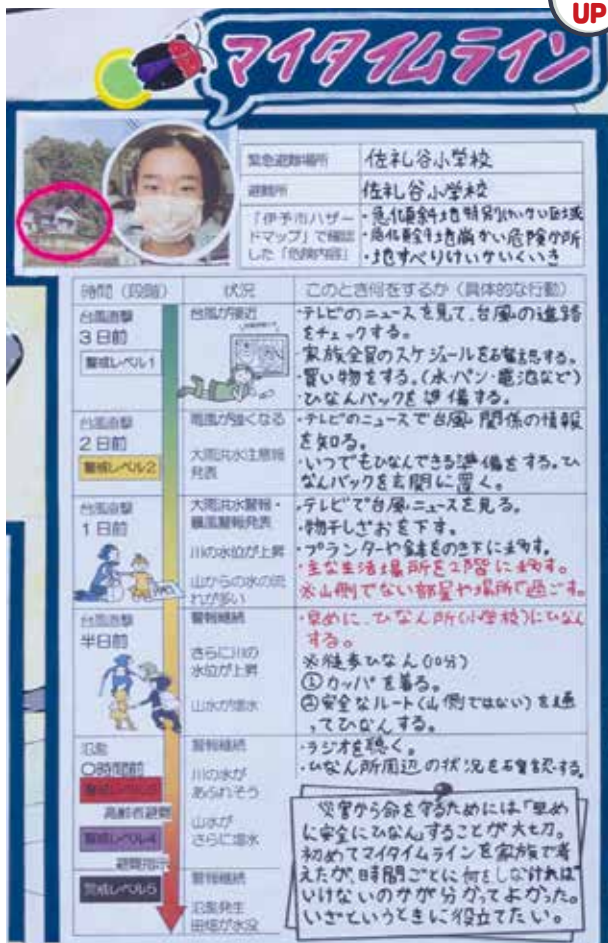 UP
マイタイムライン
緊急避難場所
佐礼谷小学校
避難所
佐礼谷小学校
「伊予市ハザー
ドマップ」で確認
した「危険内容」
・急傾斜土地特別けいかい区域
・急傾斜土地崩かい危険か所
・地すべりけいかいくいき
時間（段階）
状況
このとき何をするか（具体的な行動）
台風直撃
3日前
警戒レベル1
台風が接近
・テレビのニュースを見て、台風の進路
をチェックする。
・家族全員のスケジュールを確認する。
・買い物をする。(水・パン・電池など)
・ひなんバックを準備する。
台風直撃
2日前
警戒レベル2
雨風が強くなる
大雨洪水注意報
発表
・テレビのニュースで台風関係の情報
を知る。
・いつでもひなんできる準備をする。ひ
なんバックを玄関に置く。
台風直撃
1日前
大雨洪水警報・
暴風警報発表
川の水位が上昇
山からの水の流
れが多い
・テレビで台風ニュースを見る。
・物干しざおを下す。
・プランターや鉢をのき下に移す。
・主な生活場所を2階に移す。
※山側でない部屋や場所で過ごす。
台風直撃
半日前
警報継続
さらに川の
水位が上昇
山水が増水
・早めに、ひなん所(小学校)にひなん
する。
※徒歩ひなん(10分)
①カッパを着る。
②安全なルート(山側ではない)を通
ってひなんする。
氾濫
〇時間前
警戒レベル3
高齢者避難
警戒レベル4
避難指示
警戒レベル5
警報継続
川の水が
あふれそう
山水が
さらに増水
警報継続
氾濫発生
田畑が水没
・ラジオを聴く。
・ひなん所周辺の状況を確認する。
災害から命を守るためには「早め
に安全にひなん」することが大切。
初めてマイタイムラインを家族で考
えたが、時間ごとに何をしなければ
いけないのかが分かってよかった。
いざというときに役立てたい。